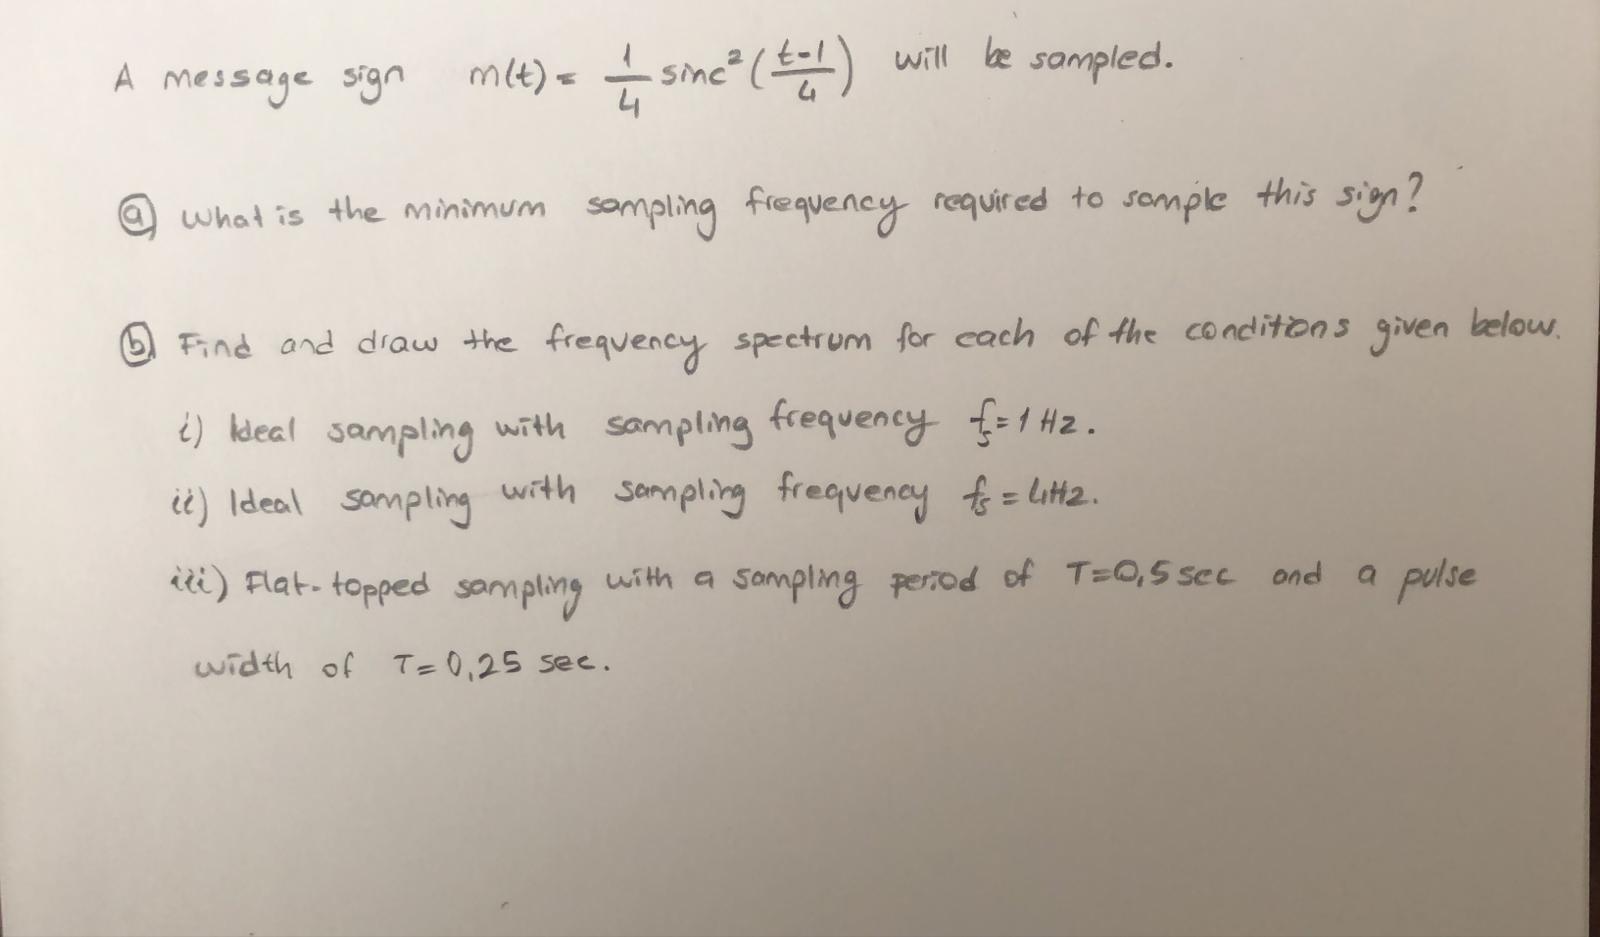 A message sign m(t) = 1/4 sinc²((t-1)/4) will be sampled.
(a) What is the minimum sampling frequency required to sample this sign?
(b) Find and draw the frequency spectrum for each of the conditions given below.
i) Ideal sampling with sampling frequency fs = 1 Hz.
ii) Ideal sampling with sampling frequency fs = 4Hz.
iii) Flat-topped sampling with a sampling period of T=0,5 sec and a pulse
width of T=0,25 sec.